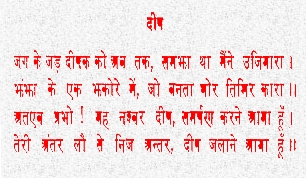 दीप
जग के जड़ दीपक को अब तक, समझा था मैंने उजियारा ।
झंझा के एक झकोरे में, जो बनता घोर तिमिर कारा ।।
अतएव प्रभो ! यह नश्वर दीप, समर्पण करने आया हूँ ।
तेरी अंतर लौ से निज अन्तर, दीप जलाने आया हूँ ।।